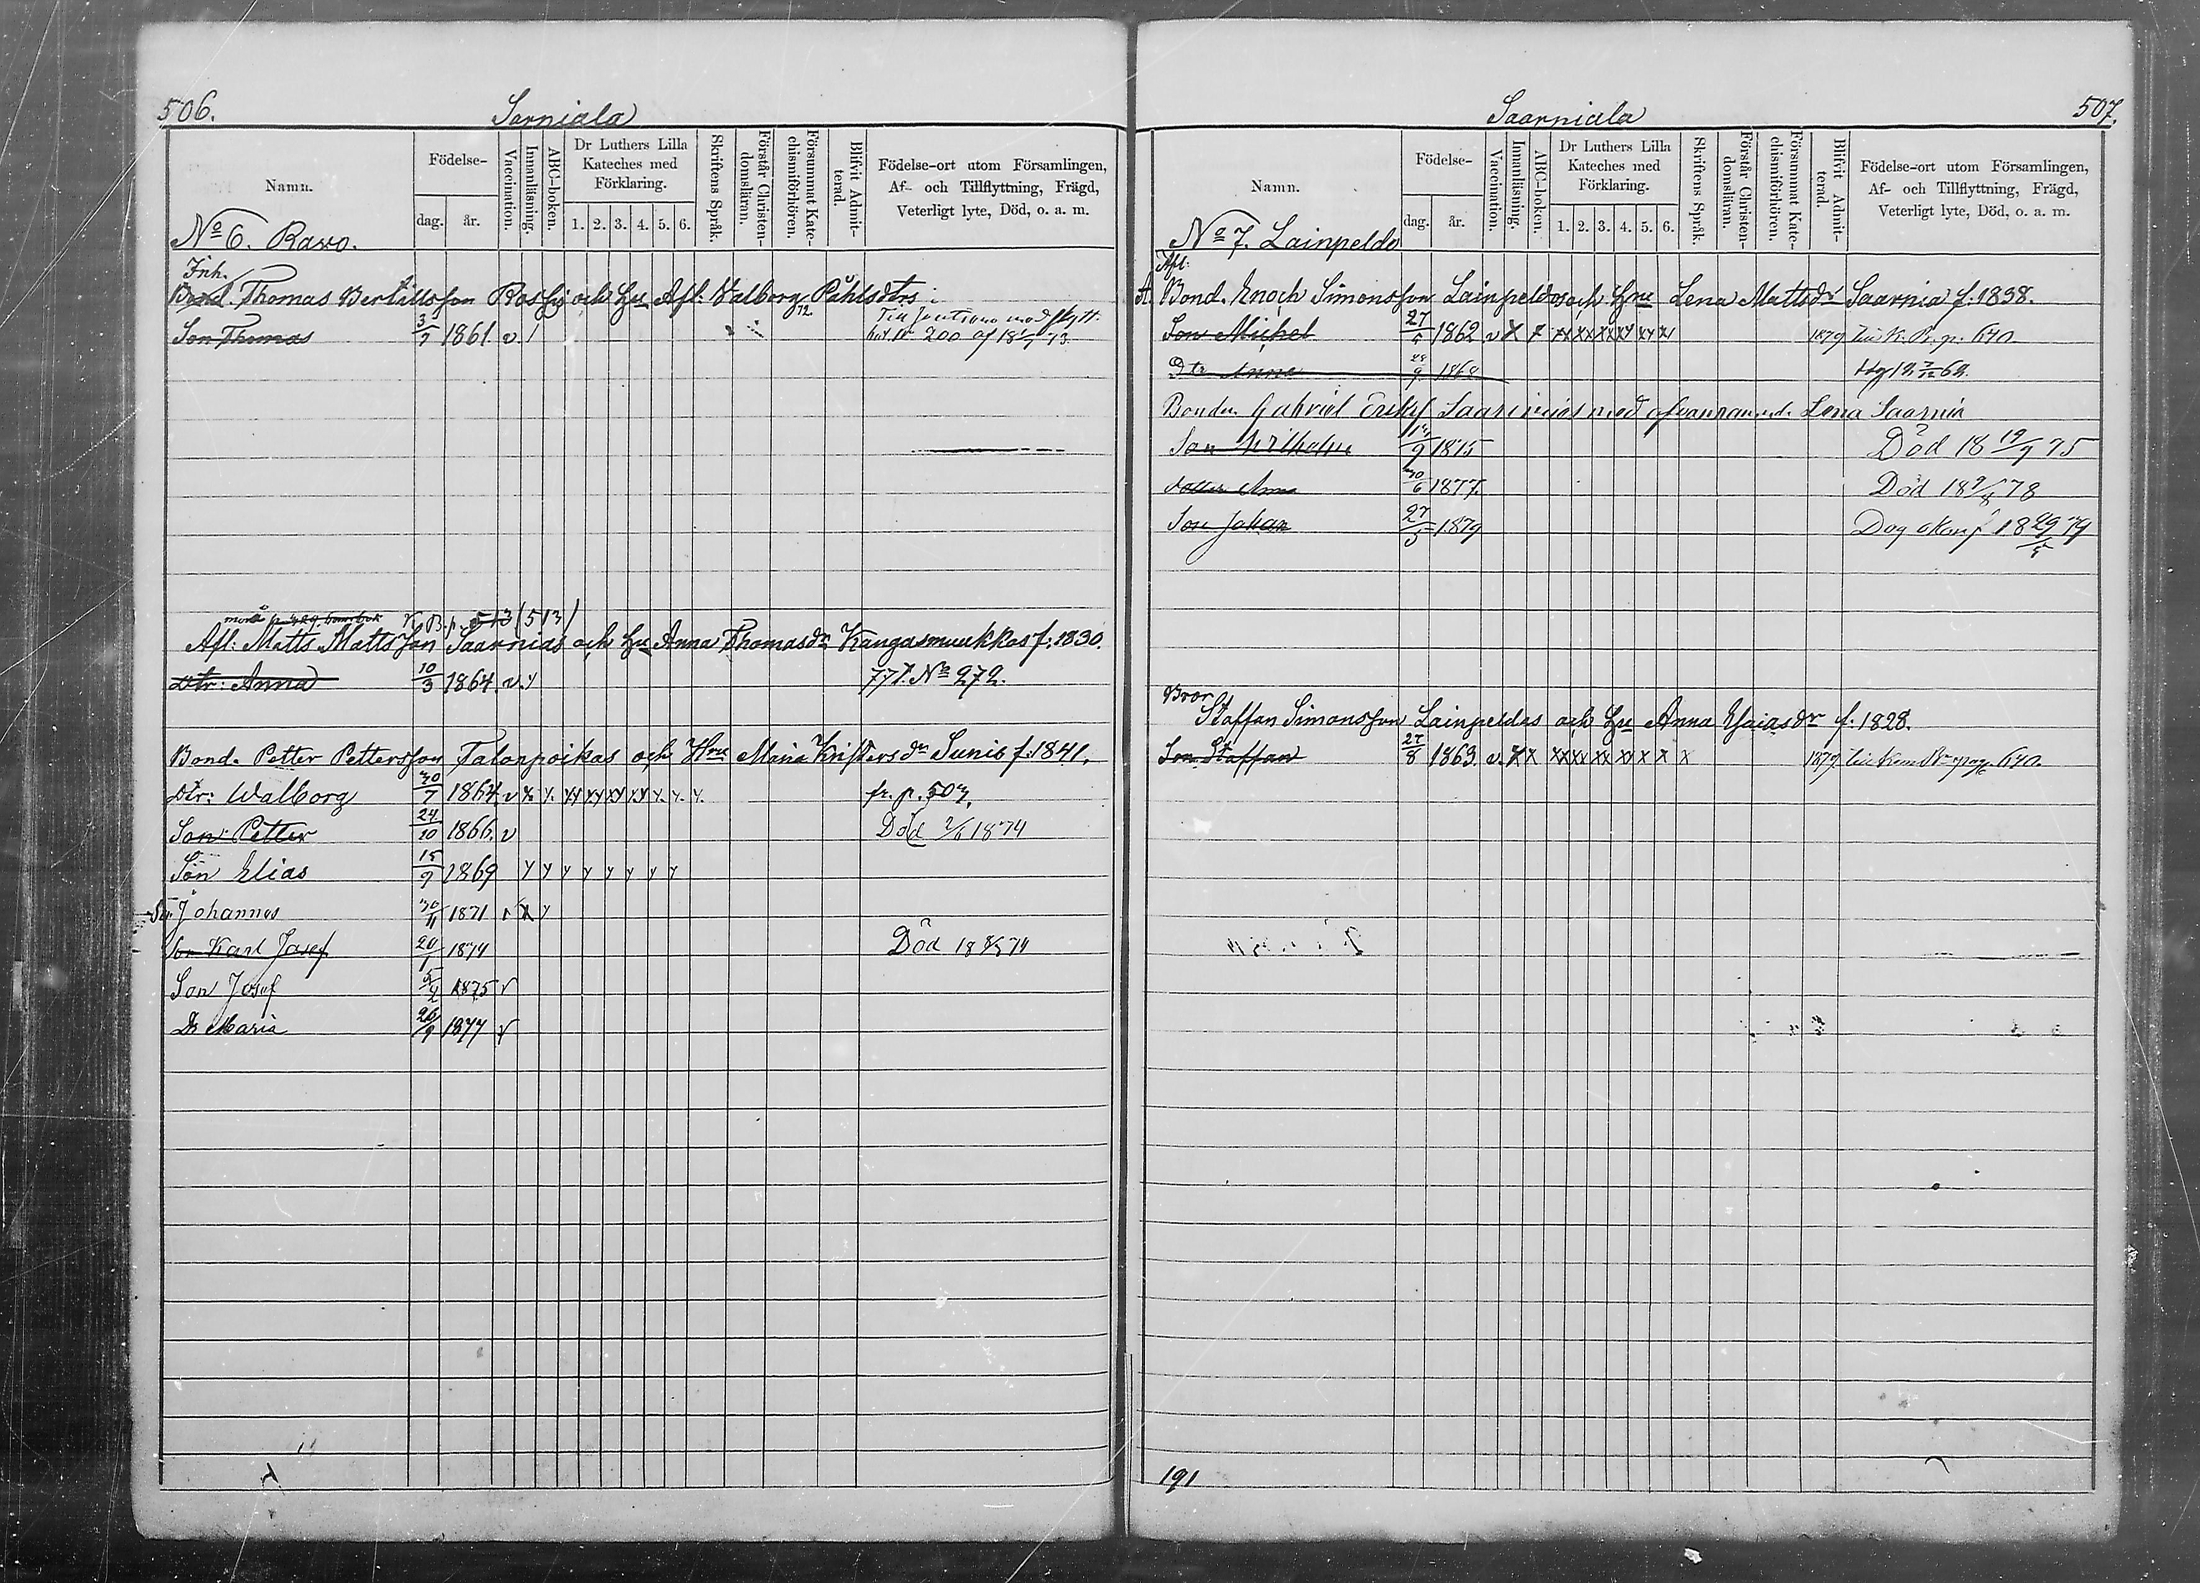 506.
Sarniala
Namn.
Födelse-
dag.
år.
Vaccination.
Innanläsning.
ABC-boken.
Dr Luthers Lilla
Kateches med
Förklaring.
1. 2. 3. 4. 5. 6.
Skriftens Språk.
Förstår Christen-
domsläran.
Försummat Kate-
chismiförhören.
Blifvit Admit-
terad.
Födelse-ort utom Församlingen,
Af- och Tillflyttning, Frägd,
Veterligt lyte, Död, o. a. m.
No 6. Ravo.
Inh.
Bond. Thomas Bertilsson och Hu Afl. Valborg Påhlsdtr
Son Thomas 3/7 1861. v. /
K. B. p. 513 (513)
Afl: Matts Mattsson Saarnias och Hu Anna Thomasdr Kangasmuukkas f. 1830.
Dtr: Anna 10/3 1864. v. y No 272.
Bond. Petter Pettersson Talonpoikas och Hru Maria Kristersdr Sunis f. 1841.
Dtr: Walborg 30/7 1864. v x y. xy xy xy xy y. y. y. fr. p. 507.
Son Petter 24/10 1866. v Död 2/6 1874
Son Elias 15/9 1869 y y y y y y y y
Son Johannes 30/11 1871 v x y
Son Karl Josef 1874 Död
Son Josef 5/2 1875 v
Dr Maria 26/9 1877 v
507.
Saarniala
Namn.
Födelse-
dag.
år.
Vaccination.
Innanläsning.
ABC-boken.
Dr Luthers Lilla
Kateches med
Förklaring.
1. 2. 3. 4. 5. 6.
Skriftens Språk.
Förstår Christen-
domsläran.
Försummat Kate-
chismiförhören.
Blifvit Admit-
terad.
Födelse-ort utom Församlingen,
Af- och Tillflyttning, Frägd,
Veterligt lyte, Död, o. a. m.
No 7. Lainpeldo
Afl:
Bond. Enoch Simonsson Lainpeldos och Hru Lena Mattsdr Saarnia f. 1838.
Son Michel 27/5 1862 v x x xx xx xx xx xx x 1879 K. B. p. 640.
Dtr Anna
Bonden Gabriel med ofvannamnde Lena Saarnia
Son Wilhelm 1875 Död 18 19/9 75
dotter Anna 30/6 1877. Död 18 9/8 78
Son Johan 27/5 1879 Dog 18 29/5 79
Bror
Staffan Simonsson Lainpeldos och Hu Anna Esaiasdr f. 1828.
Son Staffan 27/8 1863. v. x x xx xx xx xx x x x 1879 640.
191